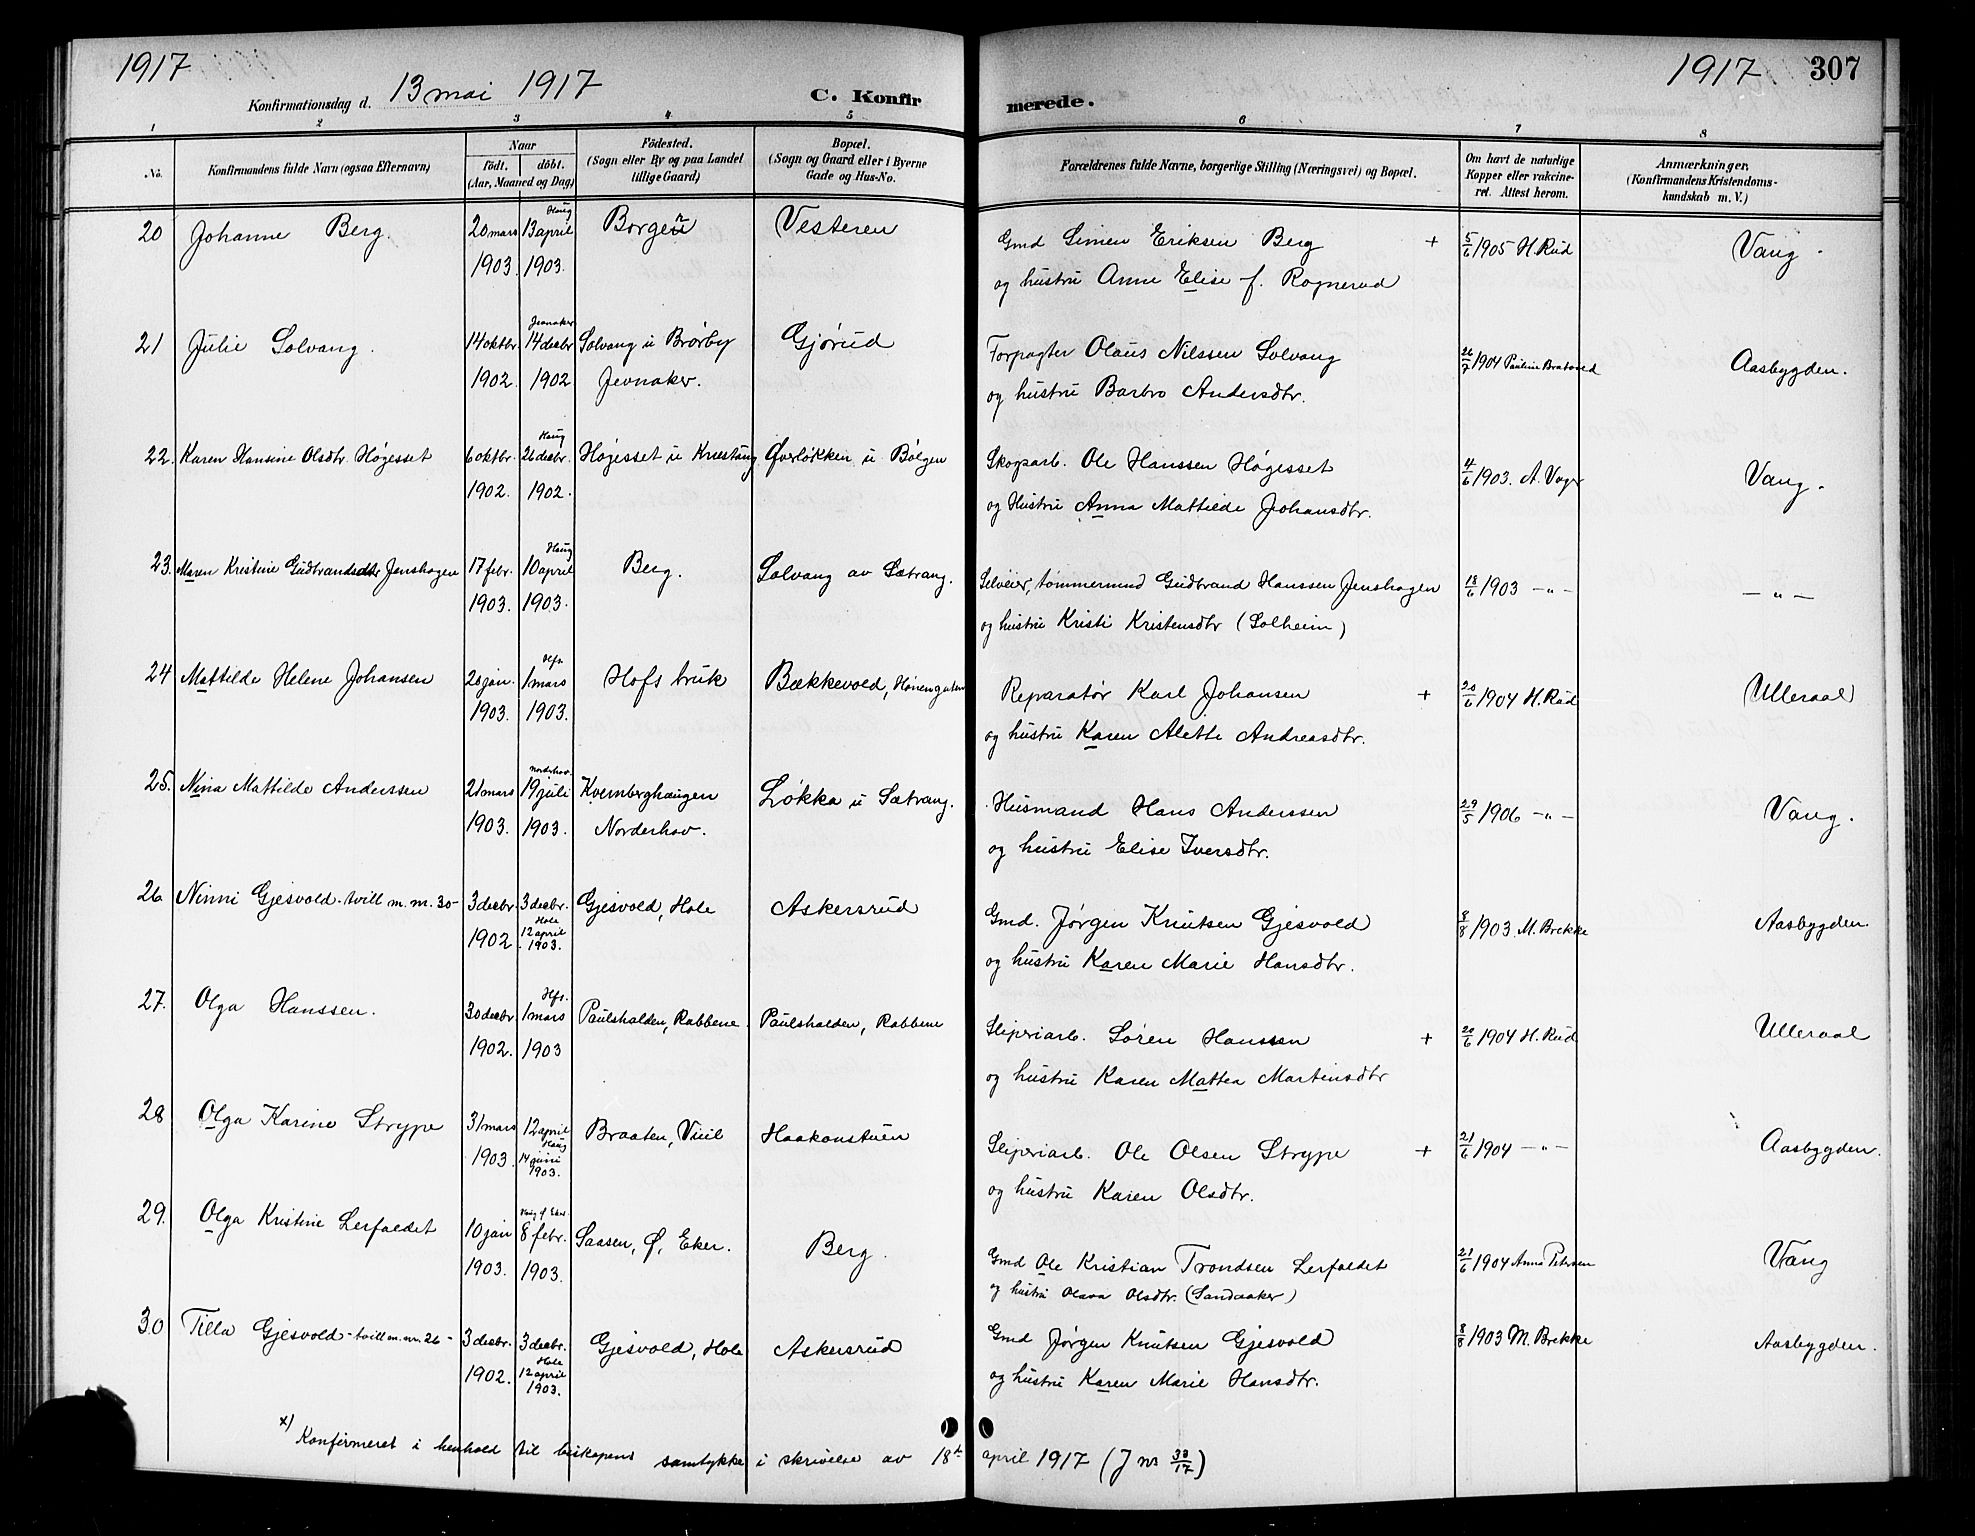 1917
Konfirmationsdag d. 13 mai 1917
C. Konfirmerede.
1917 307
1 2 3 4 5 6 7 8
No.
Konfirmandens fulde Navn (ogsaa Efternavn)
Naar
født. døbt.
(Aar, Maaned og Dag)
Fødested.
(Sogn eller By og paa Landet tillige Gaard)
Bopæl.
(Sogn og Gaard eller i Byerne Gade og Hus-No.
Forældrenes fulde Navne, borgerlige Stilling (Næringsvei) og Bopæl.
Om havt de naturlige Kopper eller vakcineret. Attest herom.
Anmærkninger.
(Konfirmandens Kristendomskundskab m. V.)
20 Johanne Berg. 20 mars 1903. Haug 13 april 1903. Borgen Vesteren
Gmd Simen Eriksen Berg + 5/6 1905 H. Rud Vang.
og hustru Anne Elise f. Rognerud
21 Julie Solvang. 14 oktbr. 1902. Jevnaker 14 decbr 1902 Solvang u Brørby Jevnaker. Gjørud
Forpagter Olaus Nilssen Solvang 26/7 1904 Pauline Aasbygden.
og hustru Barbro Andersdtr.
22. Karen Hansine Olsdtr. Høgesset 6 oktbr. 1902. Haug 26 decbr. 1902. Høgesset u Øverløkken u Bølgen
Skogarb. Ole Hanssen Høgesset 4/6 1903. A. Vang.
og Hustru Anna Mathilde Johansdtr.
23. Maren Kristine Gudbrandsdtr Jenshagen 17 febr. 1903. Haug 10 april 1903. Berg. Solvang av Sætrang.
Selveier, tømmermand Gudbrand Hanssen Jenshagen 18/6 1903 -"- -"-
og hustru Kristi Kristensdtr (Solheim)
24 Mattilde Helene Johansen 20 jan. 1903. Hfs. 1 mars 1903. Hofs bruk Bækkevold, Hønengaten
Reparatør Karl Johansen + 20/6 1904 H. Rud Ulleraal
og hustru Karen Alette Andreasdtr.
25. Nina Mattilde Anderssen 21 mars 1903. Norderhov. 19 juli 1903. Kvernberghaugen Norderhov. Løkka u Sætrang.
Husmand Hans Anderssen 29/5 1906 -"- Vang.
og hustru Elise Iversdtr.
26 Ninni Gjesvold - tvill m. nr. 30 - 3 decbr. 1902. 3 decbr. Hole 12 april 1903. Gjesvold, Hole Askersrud
Gmd. Jørgen Knutsen Gjesvold 8/8 1903. M. Brekke Aasbygden.
og hustru Karen Marie Hansdtr.
27. Olga Hanssen. 30 decbr. 1902. Hfs. 1 mars 1903 Paulshalden, Rabbene. Paulshalden, Rabbene
Sliperiarb. Søren Hanssen + 20/6 1904 H. Rud Ulleraal
og hustru Karen Mathea Martinsdtr
28 Olga Karine Strype 31 mars 1903. 12 april Haug 14 juni 1903. Braaten, Viul Haakonstuen
Sliperiarb. Ole Olsen Strype + 21/6 1904 -"- Aasbygden.
og hustru Karen Olsdtr.
29. Olga Kristine Lerfaldet 10 jan 1903. Haug Ø Eker. 8 febr. 1903. Saasen, Ø. Eker. Berg.
Gmd Ole Kristian Trondsen Lerfaldet 21/6 1904 Anna Petersen Vang
og hustru Olava Olsdtr. (Sandaaker)
30 Tilla Gjesvold - tvill m. nr. 26 - 3 decbr. 1902. 3 decbr. Hole 12 april 1903. Gjesvold, Hole Askersrud
Gmd Jørgen Knutsen Gjesvold 8/8 1903 M. Brekke Aasbygden.
og hustru Karen Marie Hansdtr.
x) Konfirmeret i henhold til biskopens samtykke i skrivelse av 18de april 1917 (J nr 33/17)